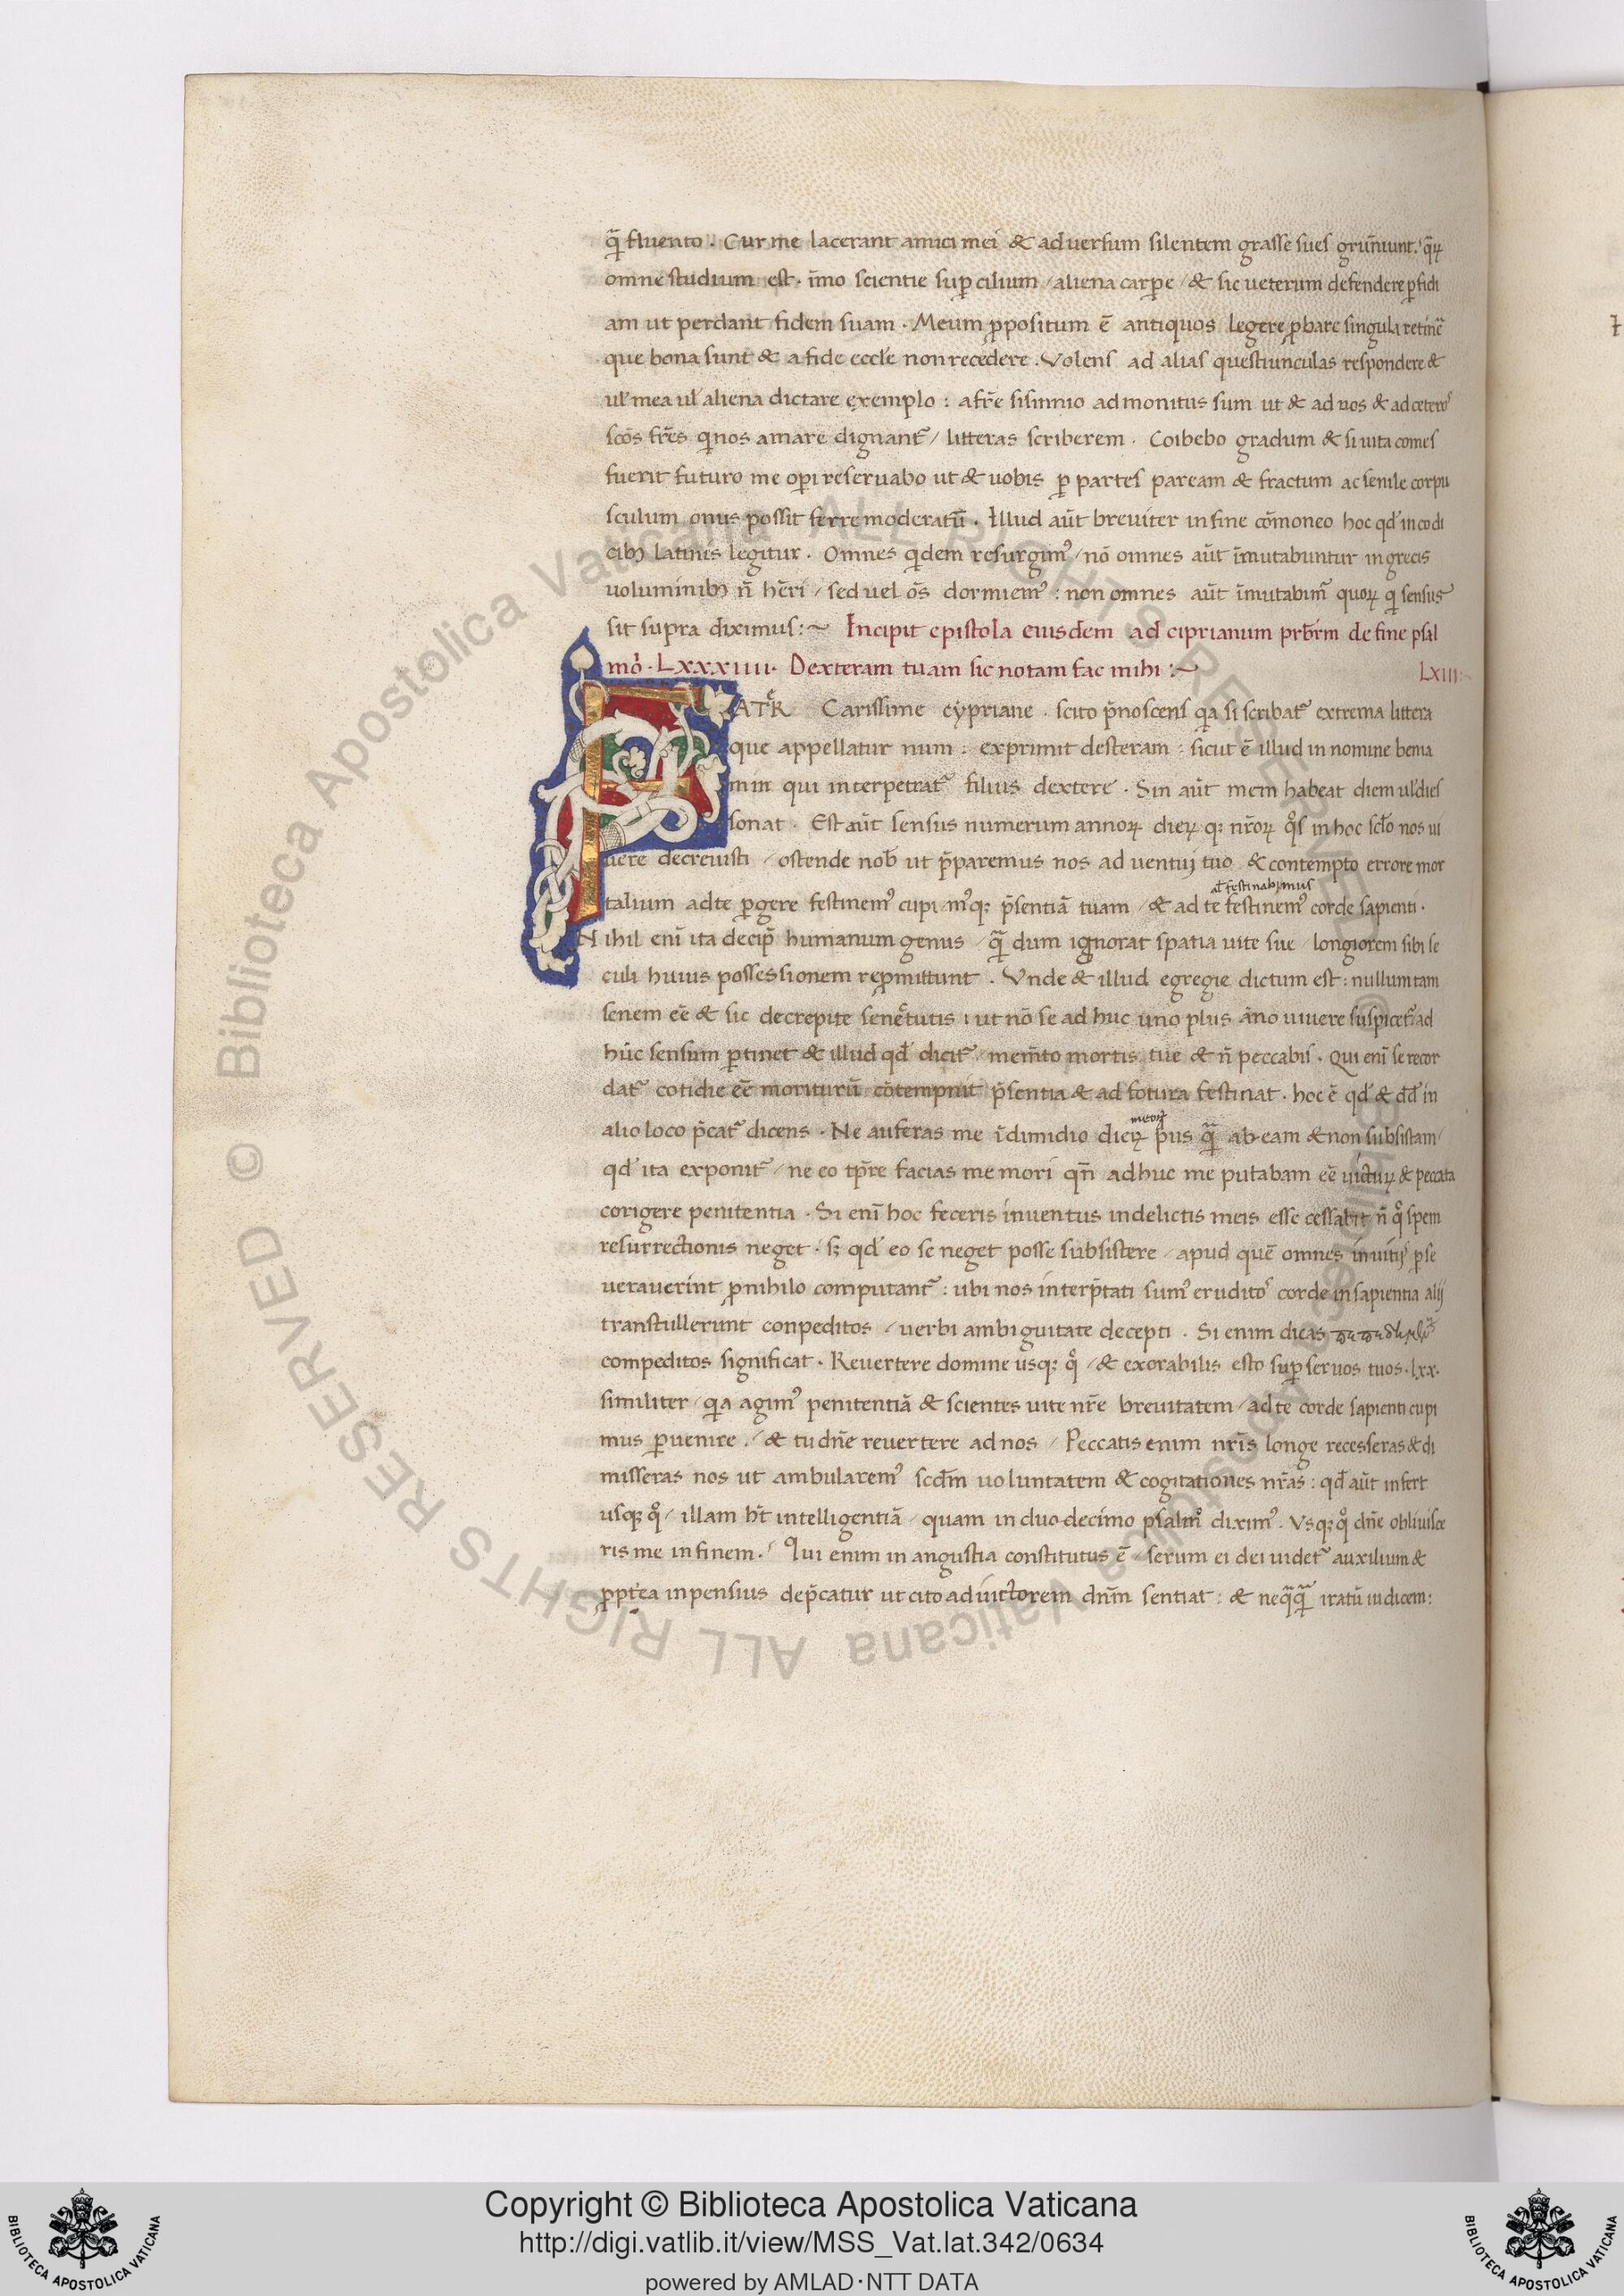 q̄ fluento . Cur me lacerant amici mei & adversum silentem grasse sues grun̄iunt? q̄ꝝ
omne studium est . īmo scientie suꝑcilium / aliena carpe / & sic ueterum defendere ꝑfidi
am ut perdant fidem suam . Meum ꝓpositum ē antiquos legere ꝓbare singula retinē
que bona sunt & a fide eccl̄e non recedere . Volens ad alias questiunculas respondere &
ul̄ mea ul̄ aliena dictare exemplo : a fr̄e sisinnio admonitus sum ut & ad uos & ad ceteros
sc̄os fr̄es qi nos amare dignant᷑ / litteras scriberem . Coibebo gradum & si uita comes
fuerit futuro me oꝑi reseruabo ut & uobis ꝑ partes paream & fractum ac senile corpu
sculum onus possit ferre moderatū . Illud aūt breviter in fine cōmoneo hoc qd̄ in codi
cibꝫ latinis legitur . Omnes qidem resurgimꝰ / nō omnes aūt īmutabuntur in grecis
uoluminibꝫ n̄ hēri / sed vel ōs dormiemꝰ : non omnes aūt īmutabim᷑ quoꝝ qi sensus
sit supra diximus :~ Incipit epistola eiusdem ad ciprianum prb̄rm de fine psal
mo . LXXXIIII . Dexteram tuam sic notam fac mihi :~ LXIII
P ATR̄ Carissime cypriane . scito p̄noscens qia si scribat᷑ extrema littera
que appellatur num : exprimit desteram : sicut ē illud in nomine benia
min qui interpetrat᷑ filius dextere . Sin aūt mem habeat diem ul̄ dies
sonat . Est aūt sensus numerum annoꝝ dieꝝ qꝫ nr̄oꝝ qͦs in hoc scl̄o nos ui
uere decreuisti / ostende nob̄ ut p̄paremus nos ad ventui tuo & contempto errore mor
al̄ festinabimus
talium ad te ꝑgere festinemꝰ cupimꝰqꝫ p̄sentiā tuam / & ad te festinemꝰ corde sapienti .
Nihil enī ita deciꝑ humanum genus / q̄ dum ignorat spatia uite sue / longiorem sibi se
culi huius possessionem reꝓmittunt . Vnde & illud egregie dictum est : nullum tam
senem eē & sic decrepite senectutis : ut nō se ad huc uno plus āno uiuere suspicet᷑ ad
hūc sensum ꝑtinet & illud qd̄ dicit᷑ / mem̄to mortis tue & n̄ peccabis . Qui enī se recor
dat᷑ cotidie eē moriturū cōtempnit p̄sentia & ad fotura festinat . hoc ē qd̄ & dd̄ in
meoꝝ
alio loco p̄cat᷑ dicens . Ne auferas me ī dimidio dieꝝ pͥus q̄ ab eam & non subsistam /
qd̄ ita exponit᷑ / ne eo tp̄re facias me mori qn̄ ad huc me putabam eē uictuꝝ & peccata
corigere penitentia . Si enī hoc feceris inventus in delictis meis esse cessabit n̄ qͦ spem
resurrectionis neget . sꝫ qd̄ eo se neget posse subsistere / apud quē omnes in uitiis ꝑse
verauerint ꝓnihilo computant᷑ : ubi nos interp̄tati sumꝰ eruditos corde in sapientia alij
transtullerunt conpeditos / uerbi ambiguitate decepti . Si enim dicas
compeditos significat . Revertere domine usqꝫ qͦ / & exorabilis esto suꝑ seruos tuos . lxx .
similiter / qia agimꝰ penitentiā & scientes uite nr̄e brevitatem / ad te corde sapienti cupi
mus ꝑuenire . / & tu dn̄e revertere ad nos / Peccatis enim nr̄is longe recesseras & di
misseras nos ut ambularemꝰ scd̄m uoluntatem & cogitationes nr̄as : qd̄ aūt infert
usqꝫ qͦ / illam h̄t intelligentiā / quam in duodecimo psalmo diximꝰ . Vsqꝫ qͦ dn̄e obliuisce
ris me in finem . Qui enim in angustia constitutus ē / serum ei dei uidet᷑ auxilium &
ꝓpt̄ea inpensius dep̄catur ut cito adiuctorem dn̄m sentiat : & neq̄q̄ iratū iudicem :
Copyright © Biblioteca Apostolica Vaticana
http://digi.vatlib.it/view/MSS_Vat.lat.342/0634
powered by AMLAD·NTT DATA
BIBLIOTECA APOSTOLICA VATICANA
BIBLIOTECA APOSTOLICA VATICANA
© Biblioteca Apostolica Vaticana ALL RIGHTS RESERVED © Biblioteca Apostolica Vaticana ALL RIGHTS RESERVED